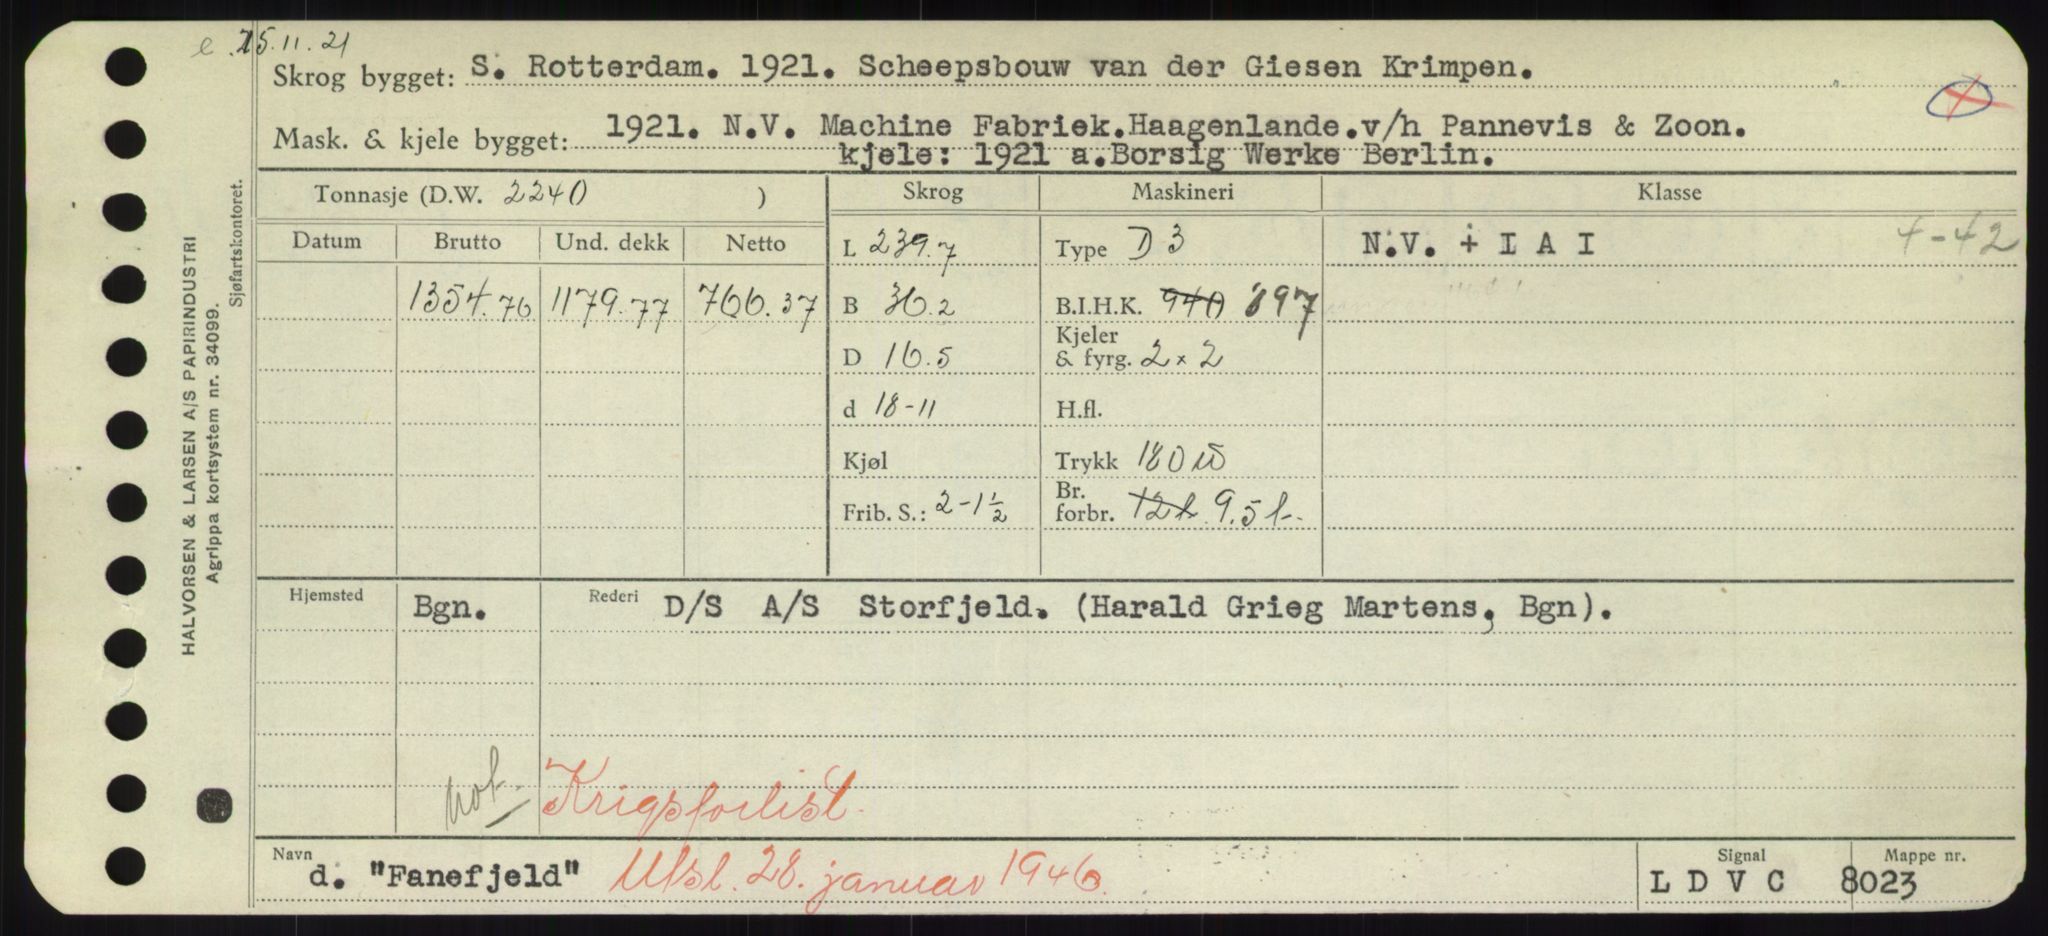 e. 15.11.21
Skrog bygget: S. Rotterdam. 1921. Scheepsbouw van der Giesen Krimpen.
Mask. & kjele bygget: 1921. N.V. Machine Fabriek.Haagenlande.v/h Pannevis & Zoon.
kjele: 1921 a.Borsig Werke Berlin.
Tonnasje (D.W. 2240 ) Skrog Maskineri Klasse
Datum Brutto Und. dekk Netto L 239.7 Type D 3 N.V. + I A I 4-42
1354.76 1179.77 766.37 B 36.2 B.I.H.K. 940 897
D 16.5 Kjeler & fyrg. 2 x 2
d 18-11 H.fl.
Kjøl Trykk 180
Frib. S.: 2-1½ Br. forbr. 12 t. 9.5 t.
Hjemsted Bgn. Rederi D/S A/S Storfjeld. (Harald Grieg Martens, Bgn).
not. Krigsforlist.
Navn d. "Fanefjeld" Utsl. 28. januar 1946. Signal L D V C Mappe nr. 8023
HALVORSEN & LARSEN A/S PAPIRINDUSTRI
Agrippa kortsystem nr. 34099.
Sjøfartskontoret.